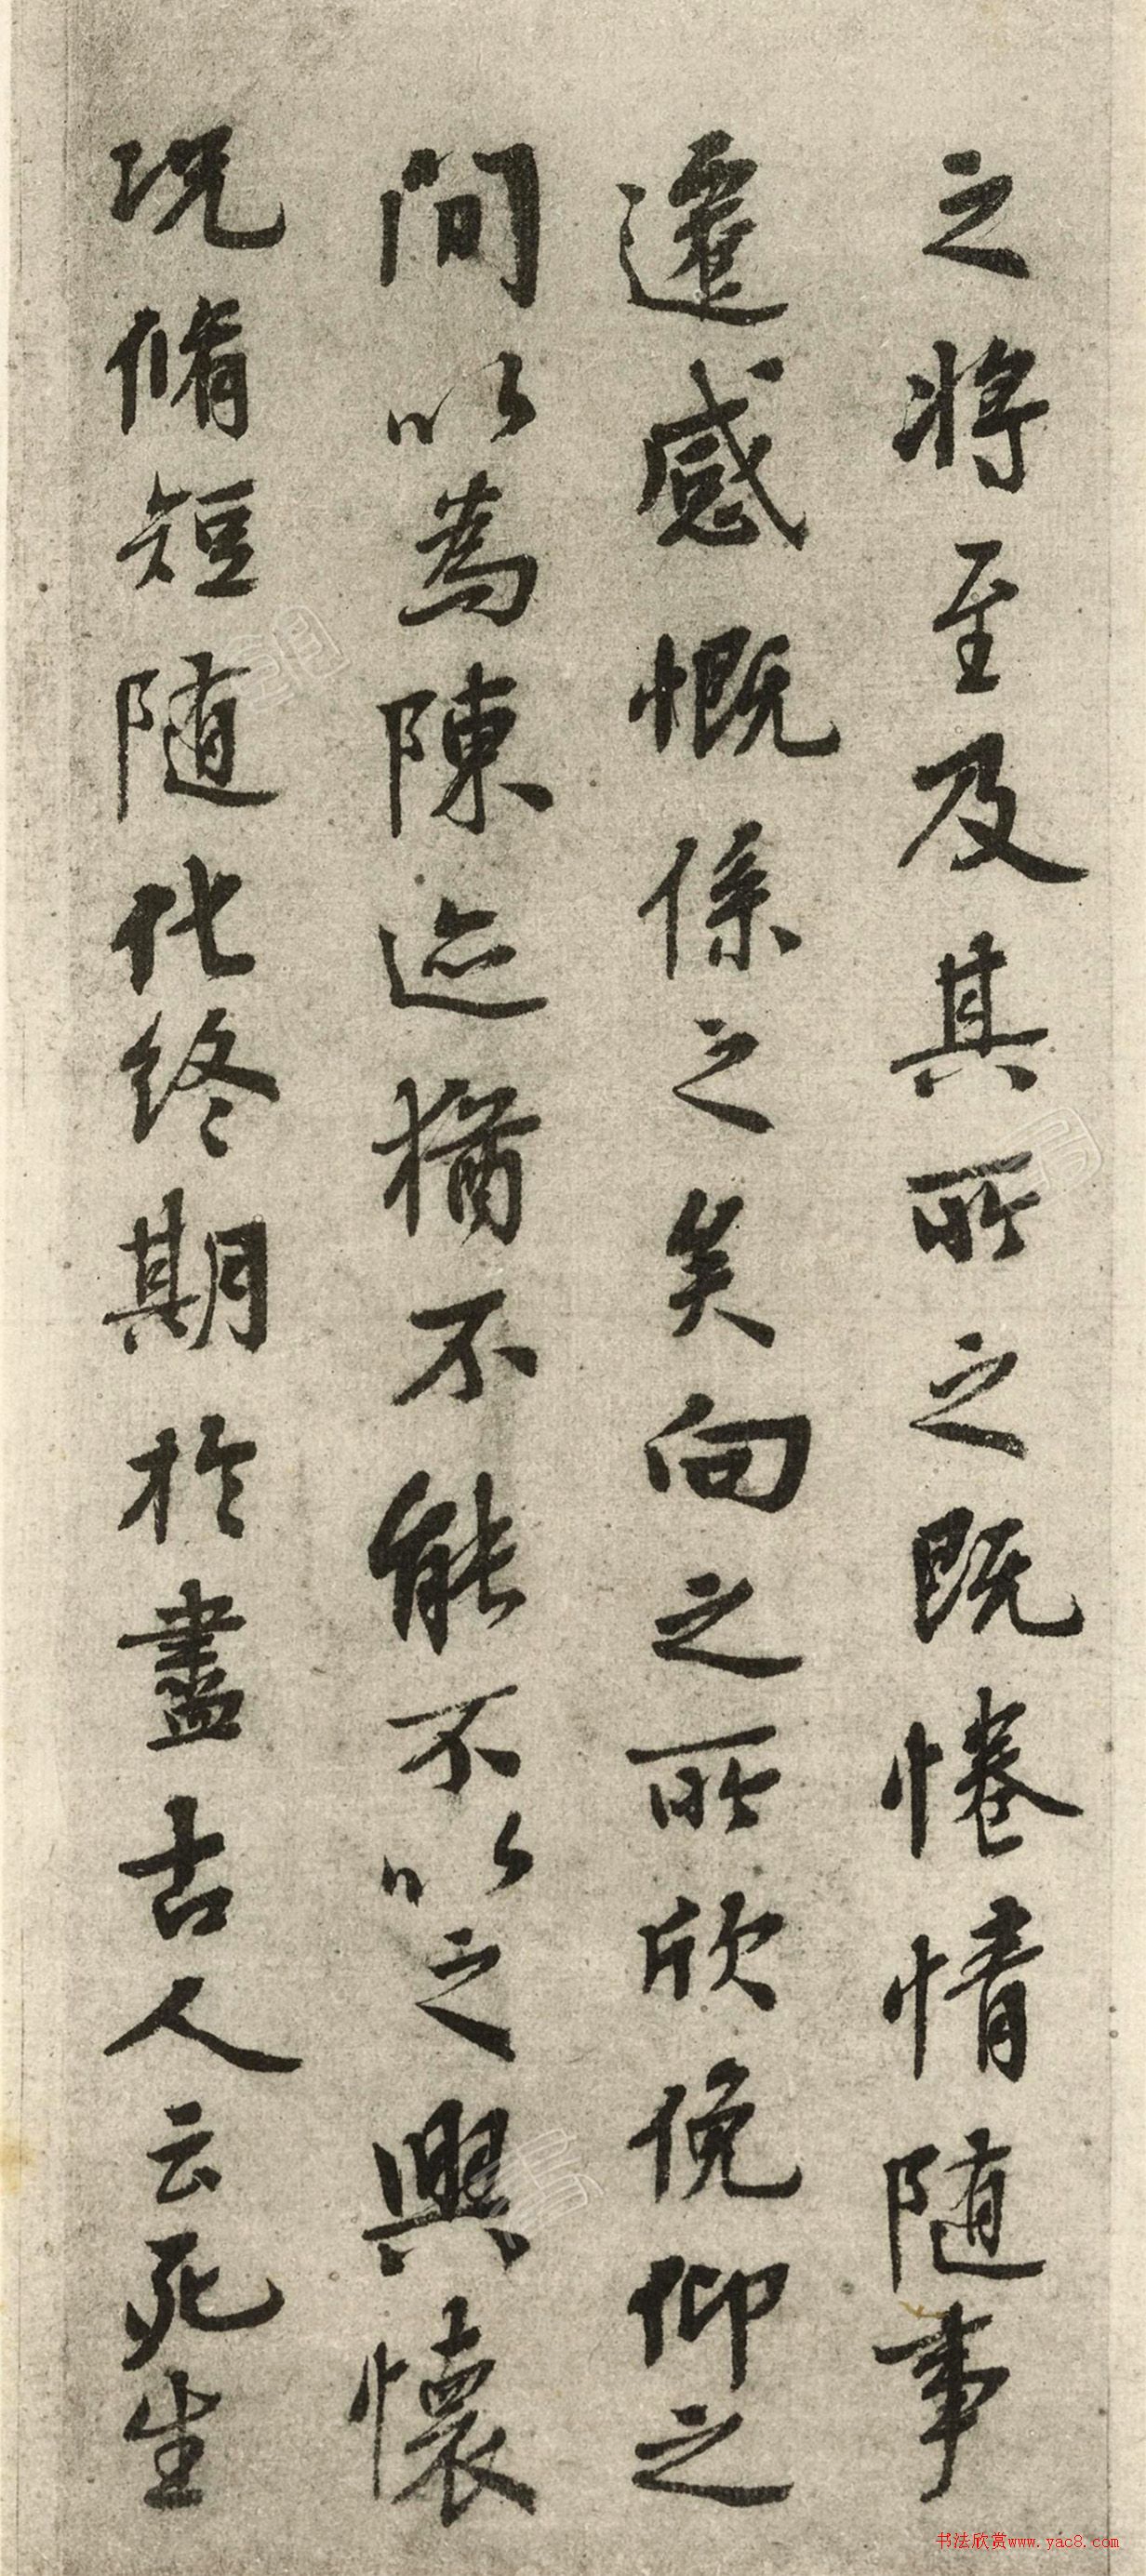 之将至及其所之既惓情随事
遷感慨係之矣向之所欣俛仰之
間以為陳迹猶不能不以之興懷
况脩短随化終期於盡古人云死生
书法欣赏www.yac8.com